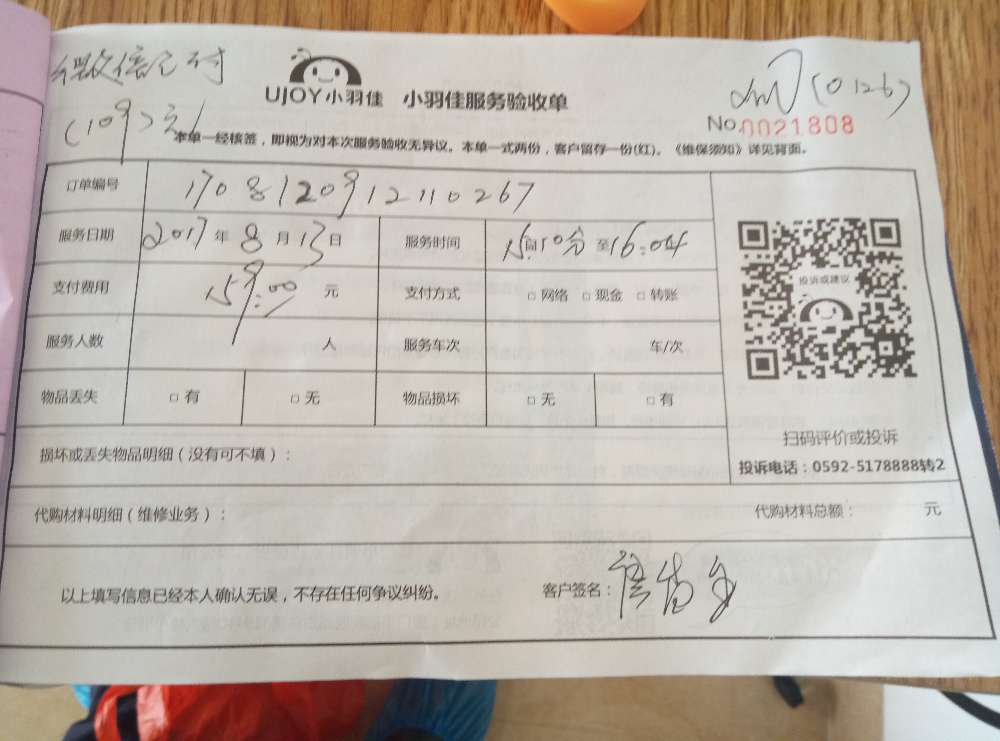 微信已付
(109)元
UJOY小羽佳 小羽佳服务验收单
(0126)
No.0021808
本单一经核签，即视为对本次服务验收无异议。本单一式两份，客户留存一份(红)。《维保须知》详见背面。
订单编号 1708120912110267
服务日期 2017年8月13日 服务时间 15时10分至16:04
支付费用 159.00元 支付方式 □网络 □现金 □转账
服务人数 人 服务车次 车/次
物品丢失 □有 □无 物品损坏 □无 □有
投诉或建议
扫码评价或投诉
投诉电话：0592-5178888转2
损坏或丢失物品明细（没有可不填）：
代购材料明细（维修业务）： 代购材料总额： 元
以上填写信息已经本人确认无误，不存在任何争议纠纷。 客户签名：